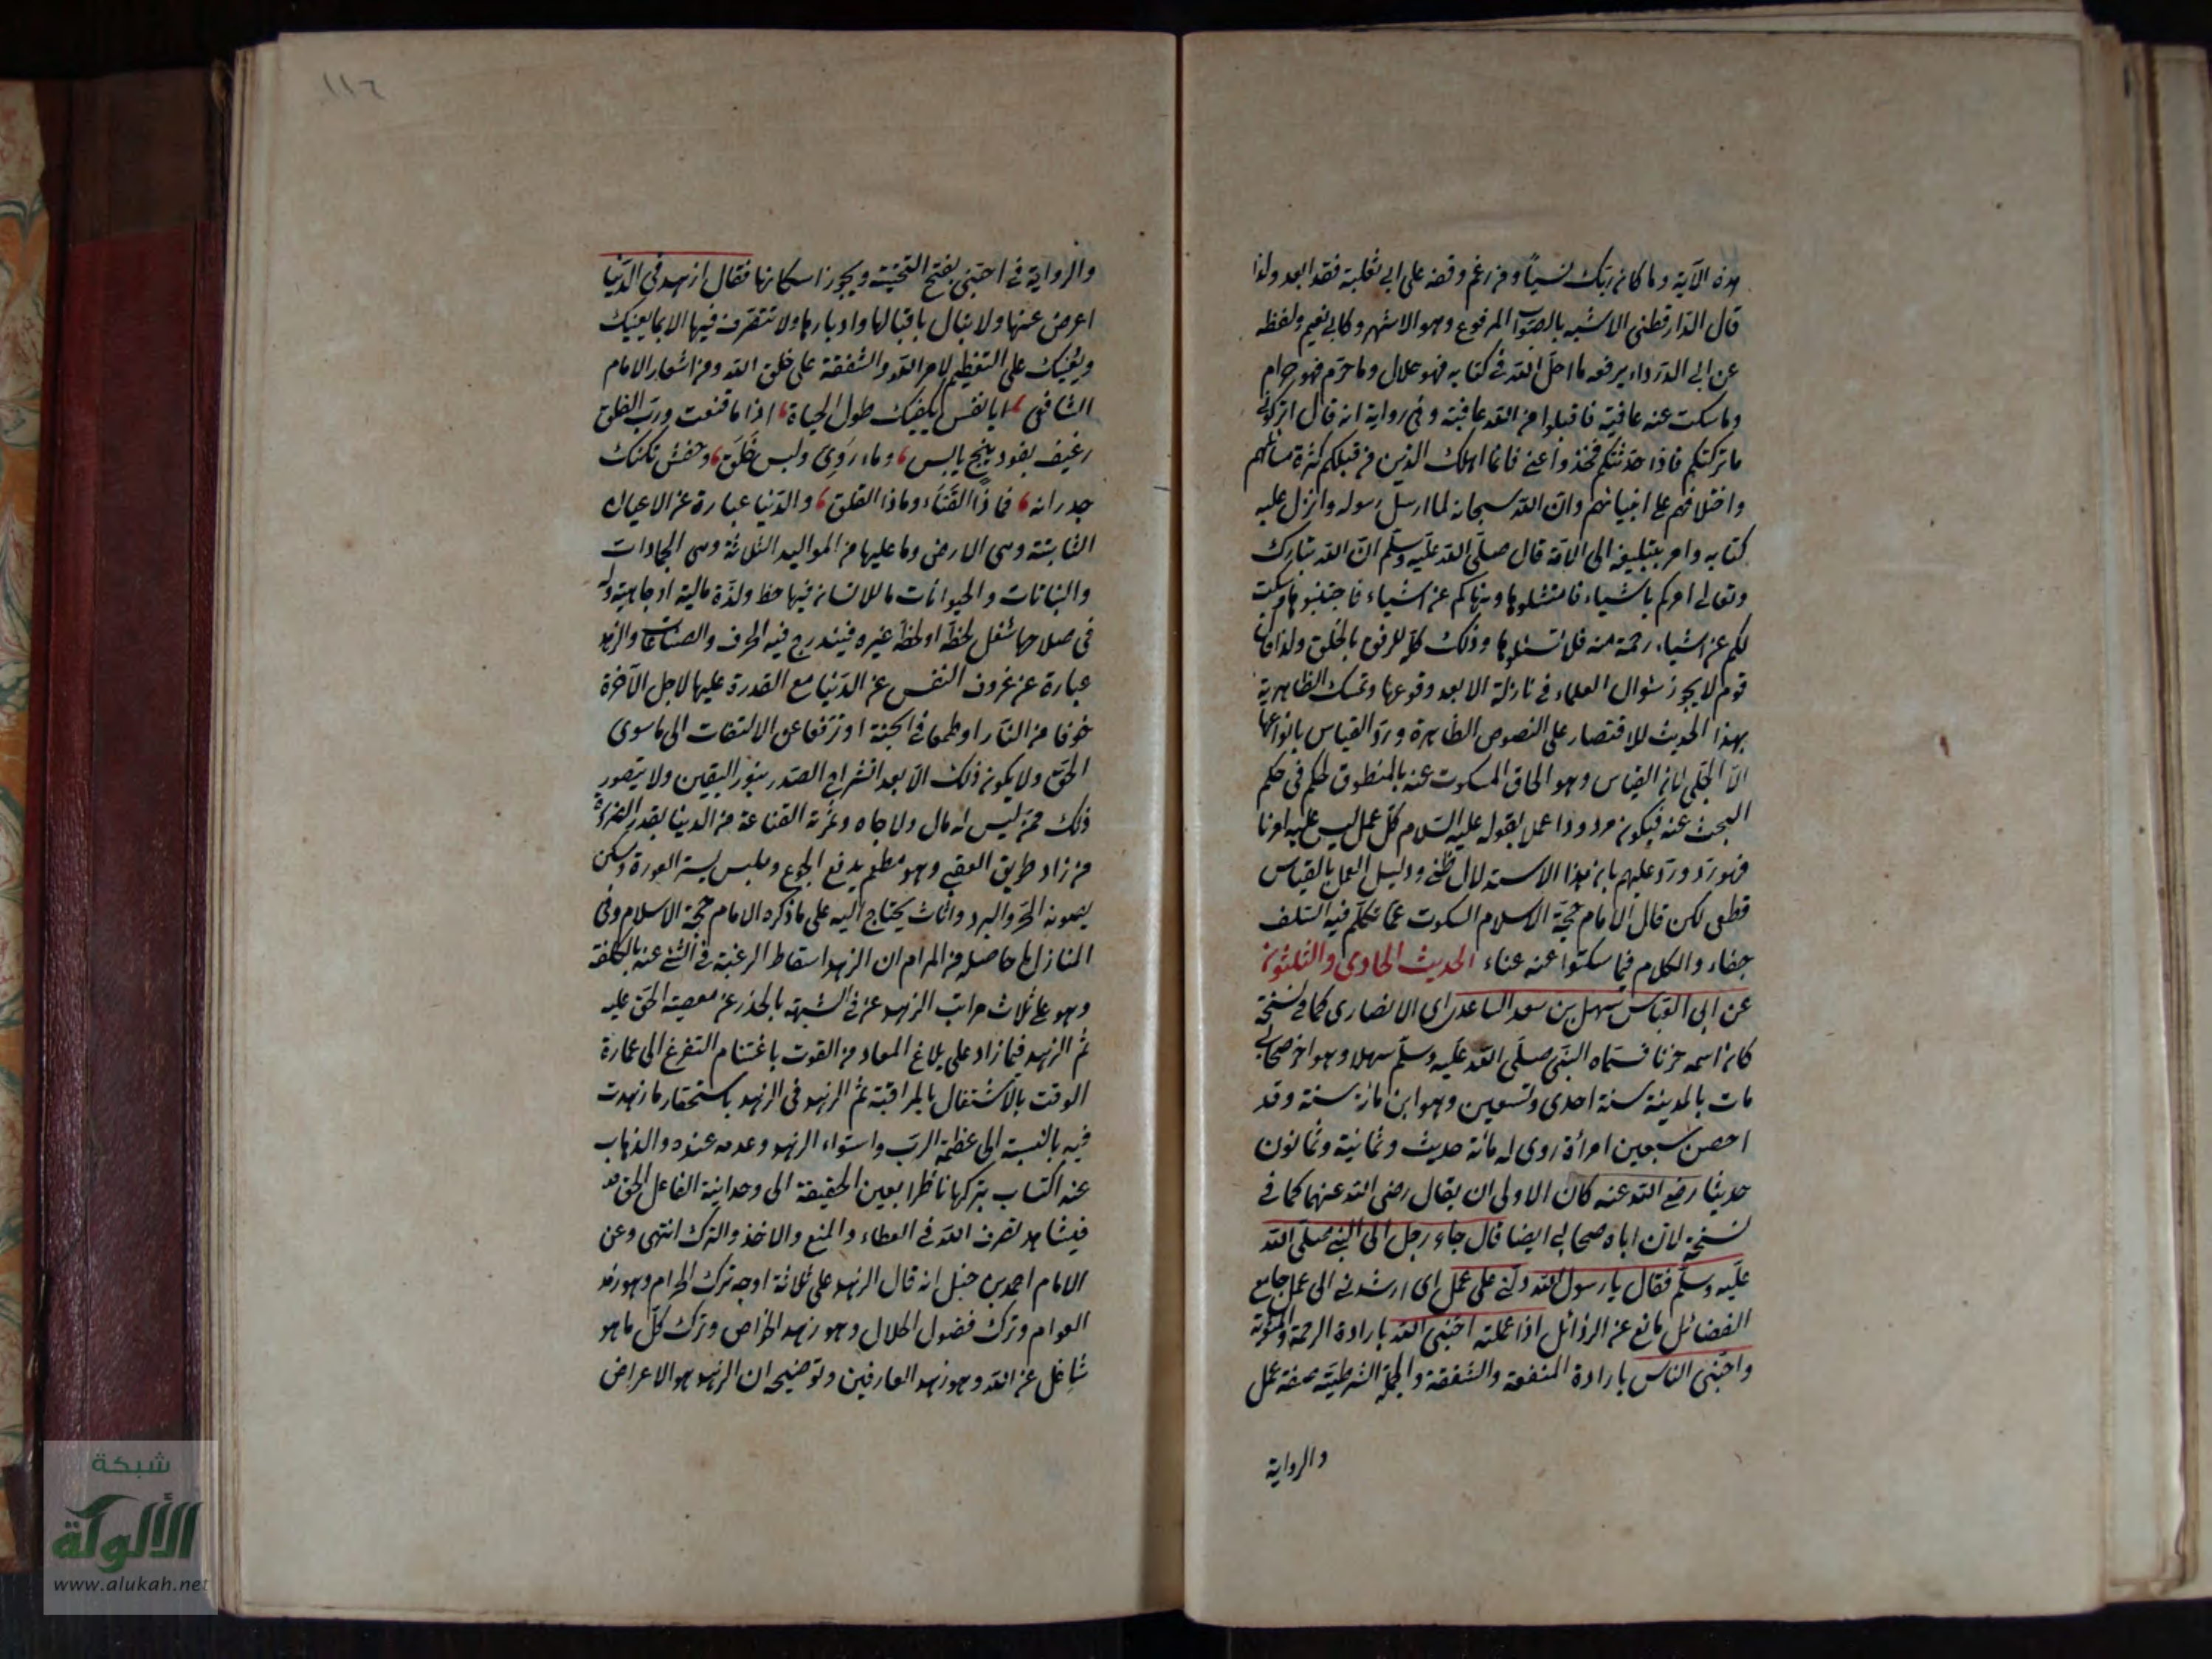 هذه الآية وما كان ربك نسيا ومن زعم وقفه على ابي ثعلبة فقد ابعد ولذا
قال الدارقطني الاشبه بالصواب المرفوع وهو الاشهر وكابي نعيم ولفظه
عن ابي الدرداء يرفعه ما احل الله في كتابه فهو حلال وما حرم فهو حرام
وما سكت عنه عافية فاقبلوا من الله عافيته وفي رواية انه قال اتركوني
ما تركتكم فاذا حدثتكم فخذوا عني فانما اهلك الذين من قبلكم كثرة مسائلهم
واختلافهم على انبيائهم وان الله سبحانه لما ارسل رسوله وانزل عليه
كتابه وامر بتبليغه الى الامة قال صلى الله عليه وسلم ان الله تبارك
وتعالى امركم باشياء فامتثلوها ونهاكم عن اشياء فاجتنبوها وسكت
لكم عن اشياء رحمة منه فلا تسئلوها وذلك كله للرفق بالخلق ولذا قال
قوم لا يجوز سؤال العلماء في نازلة الا بعد وقوعها وتمسك الظاهرية
بهذا الحديث للاقتصار على النصوص الظاهرة ورد القياس بانواعها
الا الجلي لان القياس وهو الحاق المسكوت عنه بالمنطوق لحكم في حكم
البحث عنه فيكون مردودا عمل بقوله عليه السلام كل عمل ليس عليه امرنا
فهو رد ورد عليهم بان هذا الاستدلال ظني ودليل العمل بالقياس
قطعي لكن قال الامام حجة الاسلام السكوت عما تكلم فيه السلف
جفاء والكلام فيما سكتوا عنه عناء الحديث الحادي والثلثون
عن ابي العباس سهل بن سعد الساعدي اي الانصاري كما في نسخة
كان اسمه حزنا فسماه النبي صلى الله عليه وسلم سهلا وهو اخر صحابي
مات بالمدينة سنة احدى وتسعين وهو ابن مائة سنة وقد
احصن سبعين امرأة روى له مائة حديث وثمانية وثمانون
حديثا رضي الله عنه كان الاولى ان يقال رضي الله عنهما كما في
نسخة لان اباه صحابي ايضا قال جاء رجل الى النبي صلى الله
عليه وسلم فقال يا رسول الله دلني على عمل اي ارشدني الى عمل جامع
الفضائل مانع عن الرذائل اذا عملته احبني الله بارادة الرحمة والمثوبة
واحبني الناس بارادة المنفعة والشفقة والجملة الشرطية صفة عمل
والرواية
١١٦
والرواية في احبني بفتح التحتية ويجوز اسكانها فقال ازهد في الدنيا
اعرض عنها ولا تبال باقبالها وادبارها ولا تتصرف فيها الا بما يعنيك
ويعينك على التعظيم لامر الله والشفقة على خلق الله ومن اشعار الامام
الشافعي ايا نفس يكفيك طول الحياة اذا ما قنعت ورب الفلق
رغيف بفود بنج يابس وماء روى ولبس خلق وحفش تكنك
جدرانه فماذا العناء وماذا القلق والدنيا عبارة عن الاعيان
الثابتة وهي الارض وما عليها من المواليد الثلثة وهي الجمادات
والنباتات والحيوانات ما للانسان فيها حظ ولذة مالية او جاهية وله
في صلاحها شغل لحظه او لحظ غيره فيندرج فيه الحرف والصناعات والزهد
عبارة عن عزوف النفس عن الدنيا مع القدرة عليها لاجل الآخرة
خوفا من النار او طمعا في الجنة او ترفعا عن الالتفات الى ما سوى
الحق ولا يكون ذلك الا بعد انشراح الصدر بنور اليقين ولا يتصور
ذلك ممن ليس له مال ولا جاه وثمرته القناعة من الدنيا بقدر الضرورة
من زاد طريق العقبى وهو مطعم يدفع الجوع وملبس يستر العورة ومسكن
يصونه الحر والبرد واثاث يحتاج اليه على ما ذكره الامام حجة الاسلام وفي
المنازل ما حاصله من المرام ان الزهد اسقاط الرغبة في الشئ عنه بالكلفة
وهو على ثلاث مراتب الزهد عن في الشبهة بالحذر عن معصية الحق عليه
ثم الزهد فيما زاد على بلاغ المعاد من القوت باغتنام التفرغ الى عمارة
الوقت بالاشتغال بالمراقبة ثم الزهد في الزهد باستحقار ما زهدت
فيه بالنسبة الى عظمة الرب واستواء الزهد وعدمه عنده والذهاب
عند اكتساب بتركها ناظرا بعين الحقيقة الى وحدانية الفاعل الحق
فيشاهد تصرف الله في العطاء والمنع والاخذ والترك انتهى وعن
الامام احمد بن حنبل انه قال الزهد على ثلاثة اوجه ترك الحرام وهو زهد
العوام وترك فضول الحلال وهو زهد الخواص وترك كل ما هو
شاغل عن الله وهو زهد العارفين وتوضيحه ان الزهد هو الاعراض
شبكة
الألوكة
www.alukah.net